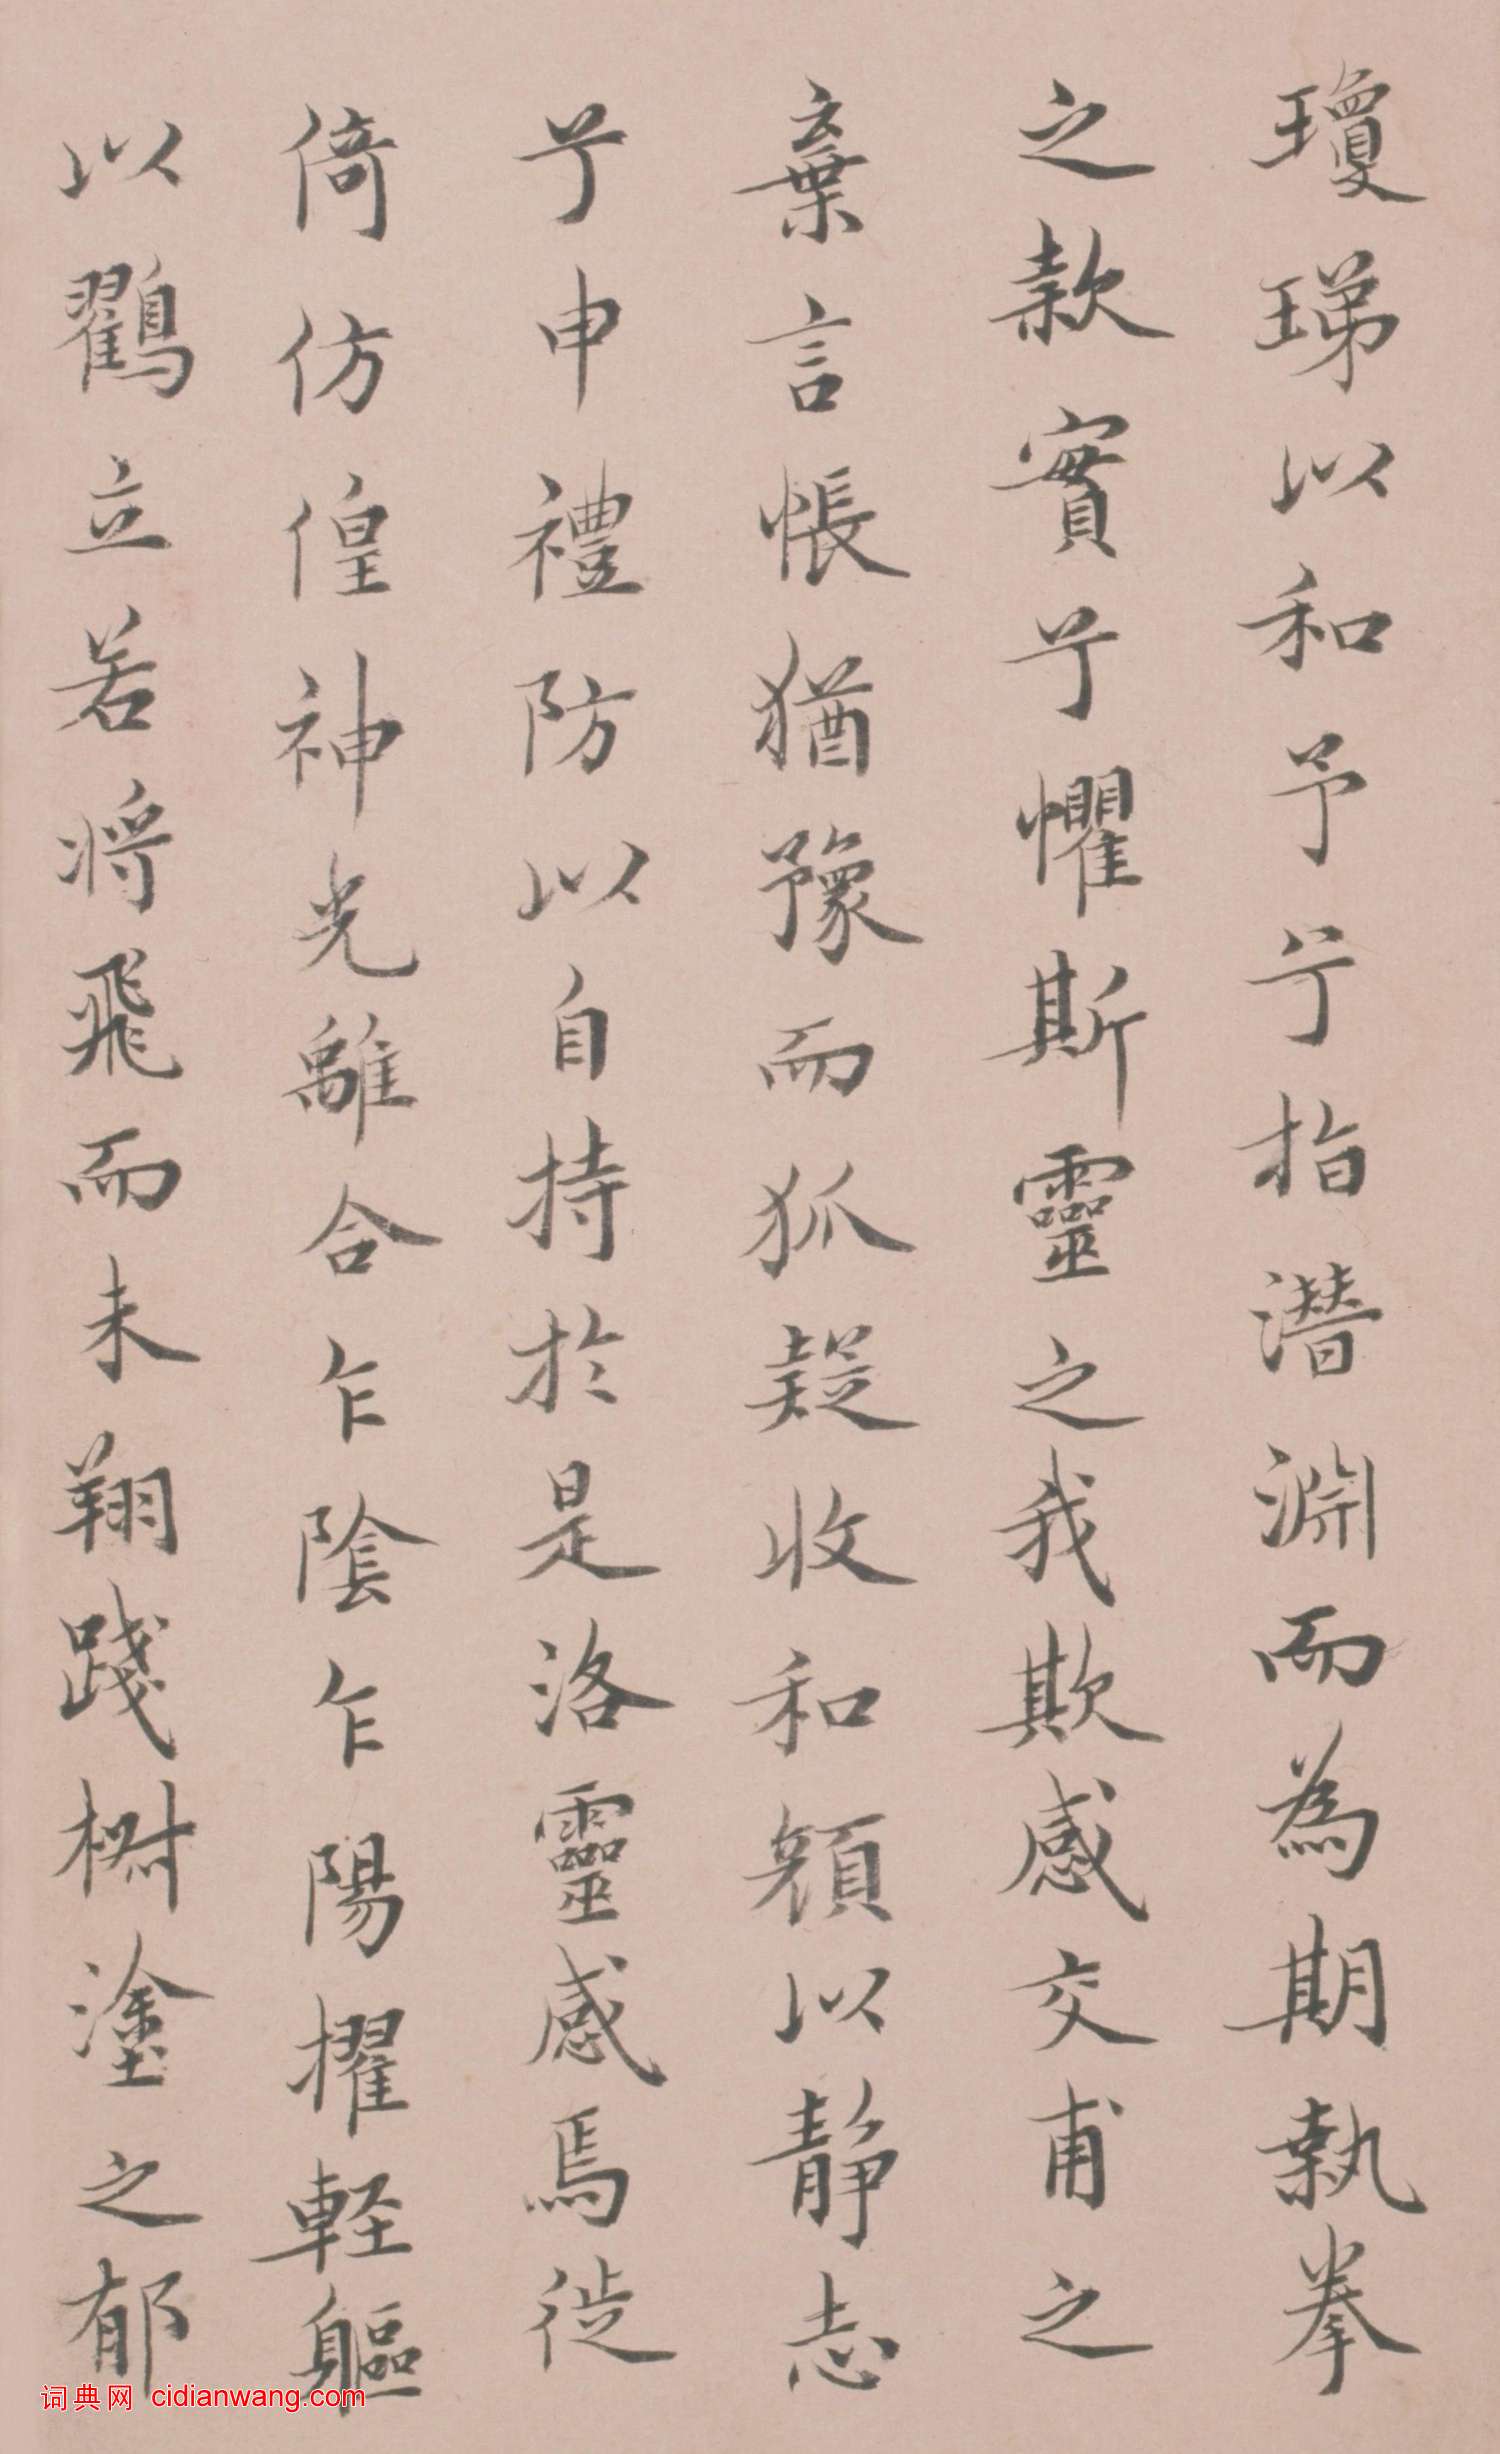 瓊珶以和予兮指潛淵而為期執拳
之款實兮懼斯靈之我欺感交甫之
棄言悵猶豫而狐疑收和顏以靜志
兮申禮防以自持於是洛靈感焉徙
倚仿偟神光離合乍陰乍陽擢輕軀
以鶴立若將飛而未翔踐椒塗之郁
词典网 cidianwang.com